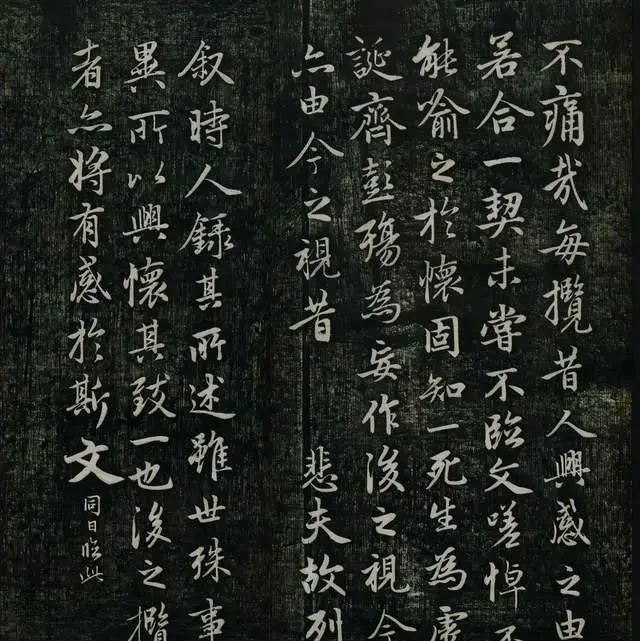 不痛哉每攬昔人興感之由
若合一契未嘗不臨文嗟悼不
能喻之於懷固知一死生為虛
誕齊彭殤為妄作後之視今
亦由今之視昔 悲夫故列
叙時人錄其所述雖世殊事
異所以興懷其致一也後之攬
者亦將有感於斯文
同日臨